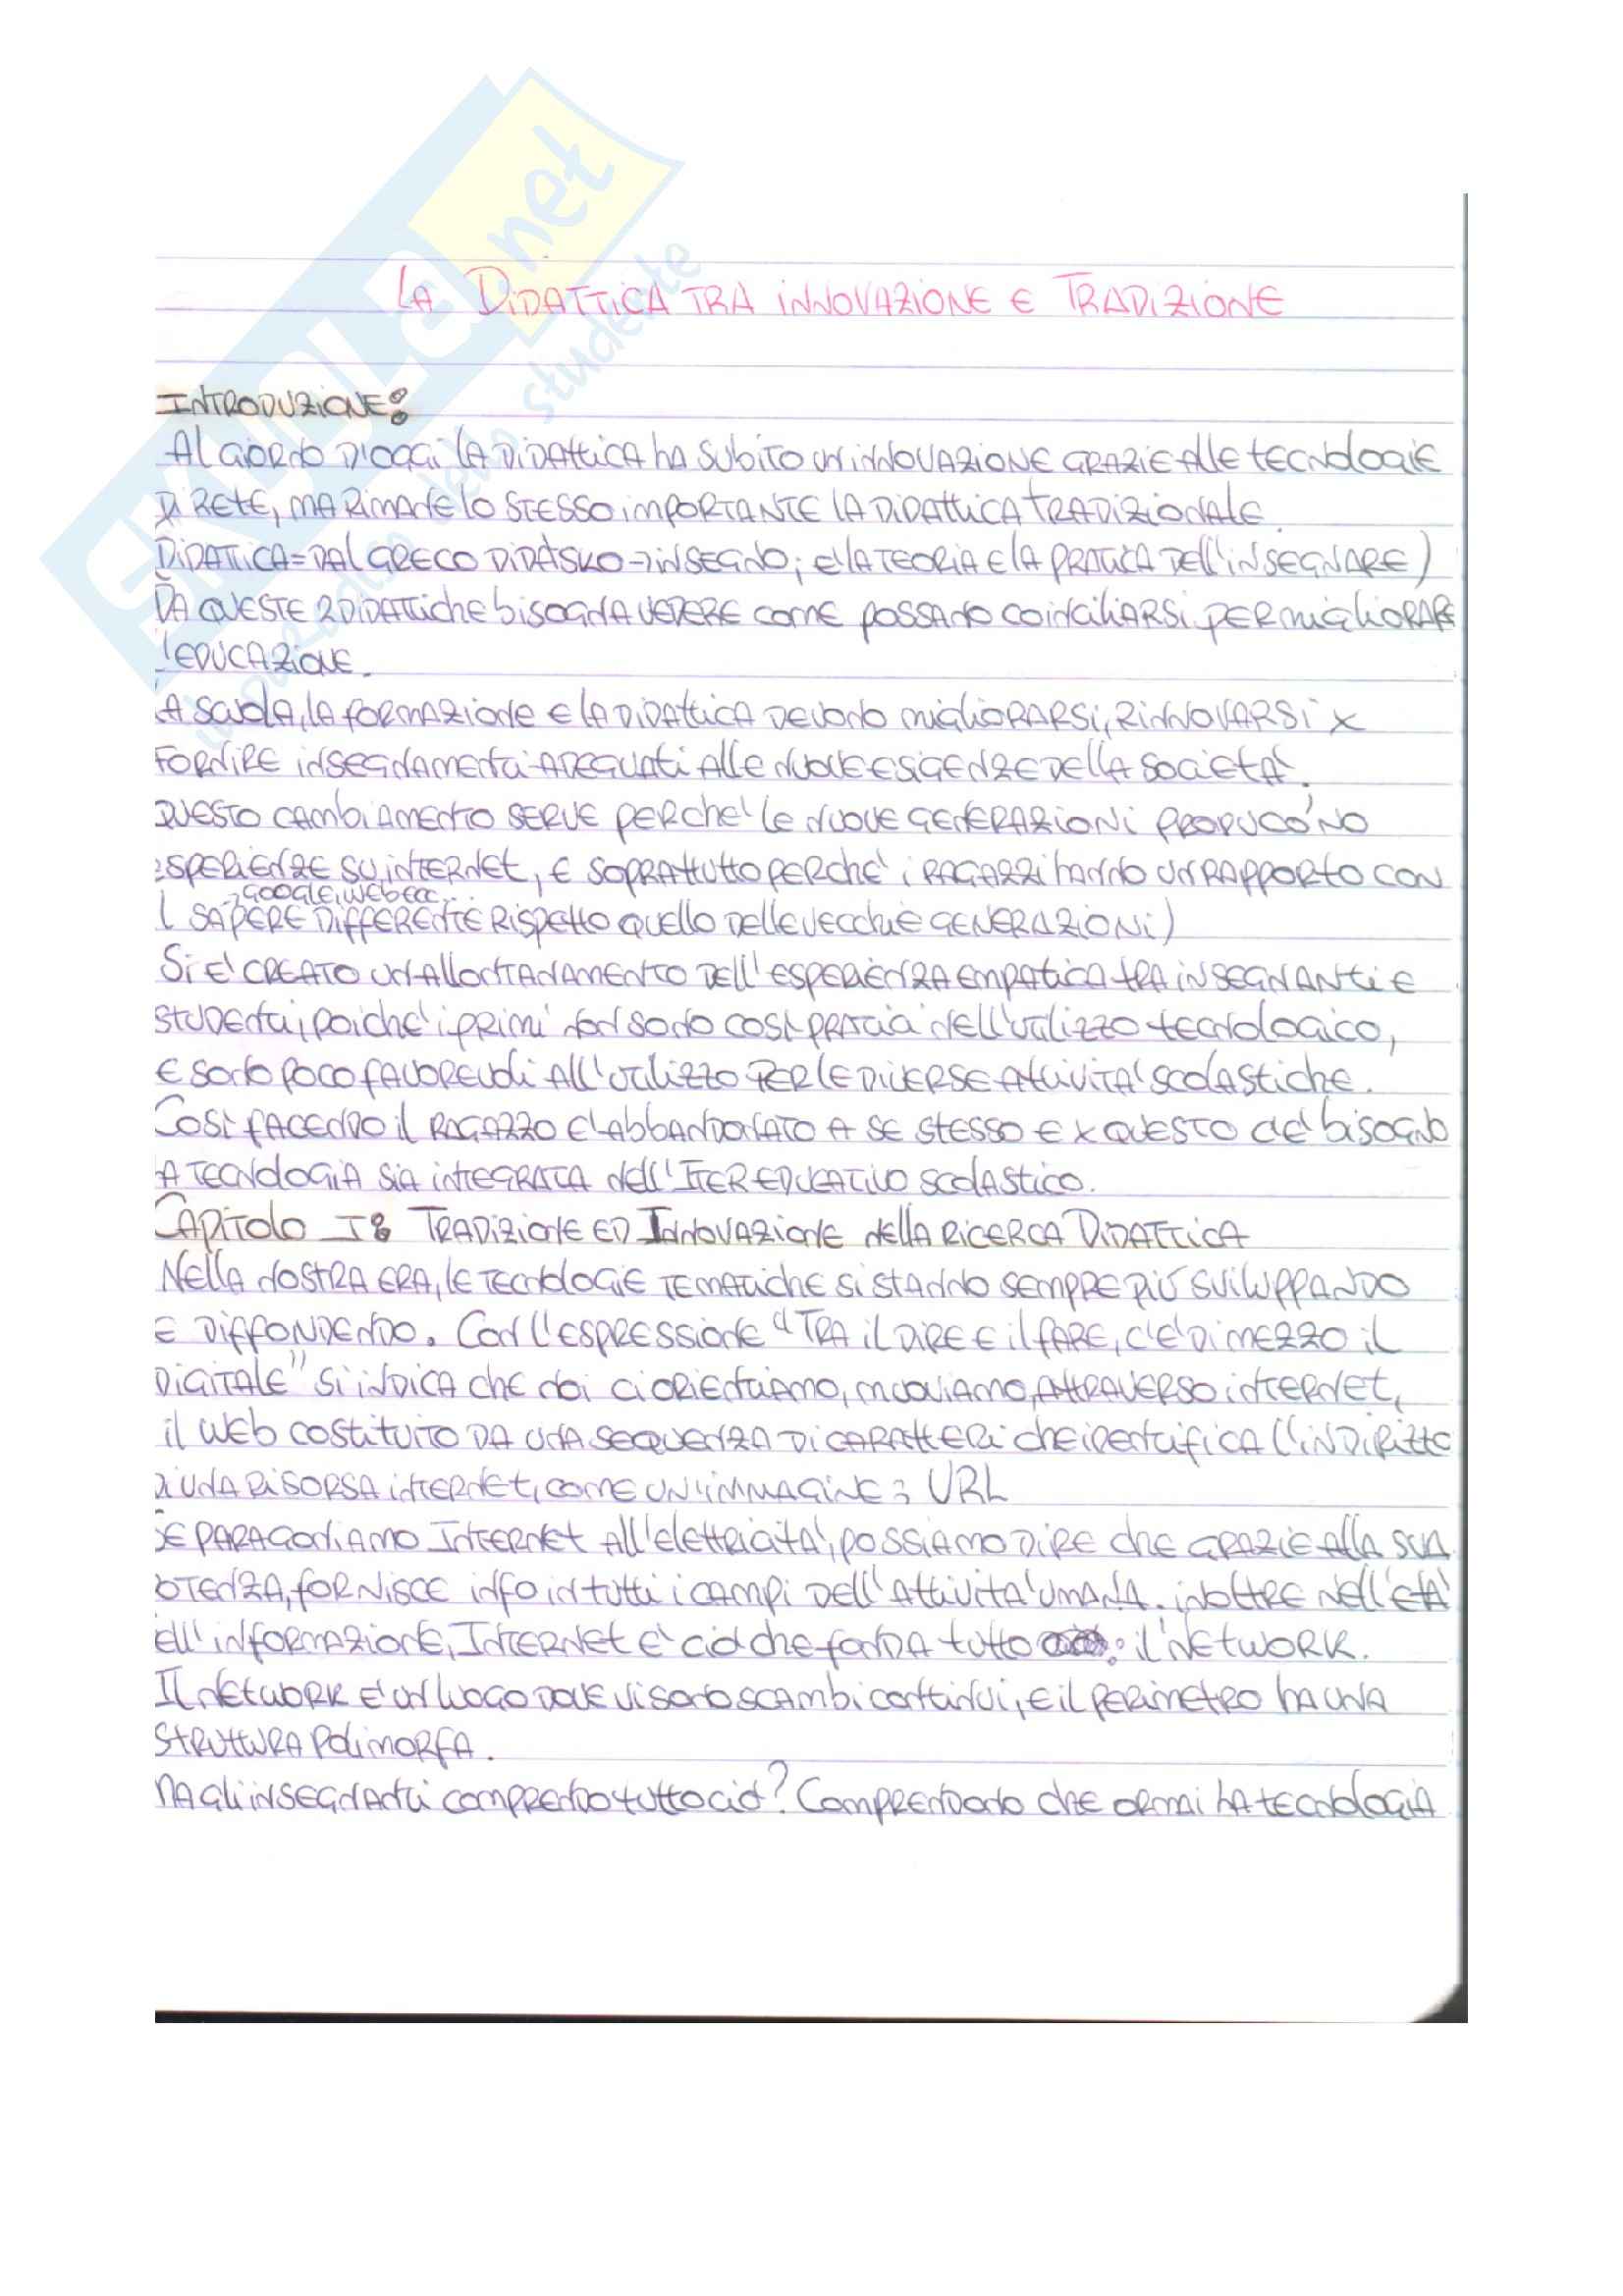 SKUOLA.net
il paradiso dello studente
LA DIDATTICA TRA INNOVAZIONE E TRADIZIONE
INTRODUZIONE:
Al giorno d'oggi la didattica ha subito un innovazione grazie alle tecnologie
di rete, ma rimane lo stesso importante la didattica tradizionale.
Didattica = dal greco didásko → insegno; e' la teoria e la pratica dell'insegnare)
Da queste 2 didattiche bisogna vedere come possano coinciliarsi per migliorare
l'educazione.
a scuola, la formazione e la didattica devono migliorarsi, rinnovarsi x
fornire insegnamenti adeguati alle nuove esigenze della società.
Questo cambiamento serve perchè le nuove generazioni producono
esperienze su internet, e soprattutto perchè i ragazzi hanno un rapporto con
→ Google, web ecc...
l sapere differente rispetto quello delle vecchie generazioni)
Si è creato un allontanamento dell'esperienza empatica tra insegnanti e
studenti, poichè i primi non sono così pratici nell'utilizzo tecnologico,
e sono poco favorevoli all'utilizzo per le diverse attività scolastiche.
Così facendo il ragazzo è abbandonato a se stesso e x questo c'è bisogno
a tecnologia sia integrata nell'iter educativo scolastico.
Capitolo I: Tradizione ed Innovazione nella ricerca Didattica
Nella nostra era, le tecnologie tematiche si stanno sempre più sviluppando
e diffondendo. Con l'espressione "Tra il dire e il fare, c'è di mezzo il
digitale" si indica che noi ci orientiamo, muoviamo, attraverso internet,
il web costituito da una sequenza di caratteri che identifica l'indirizzo
di una risorsa internet, come un'immagine: URL
Se paragoniamo Internet all'elettricità, possiamo dire che grazie alla sua
otenza, fornisce info in tutti i campi dell'attività umana. inoltre nell'età
ell'informazione, Internet è ciò che fonda tutto : il network.
Il network è un luogo dove vi sono scambi continui, e il perimetro ha una
struttura polimorfa.
Ma gli insegnanti comprendo tutto ciò? Comprendono che ormai la tecnologia